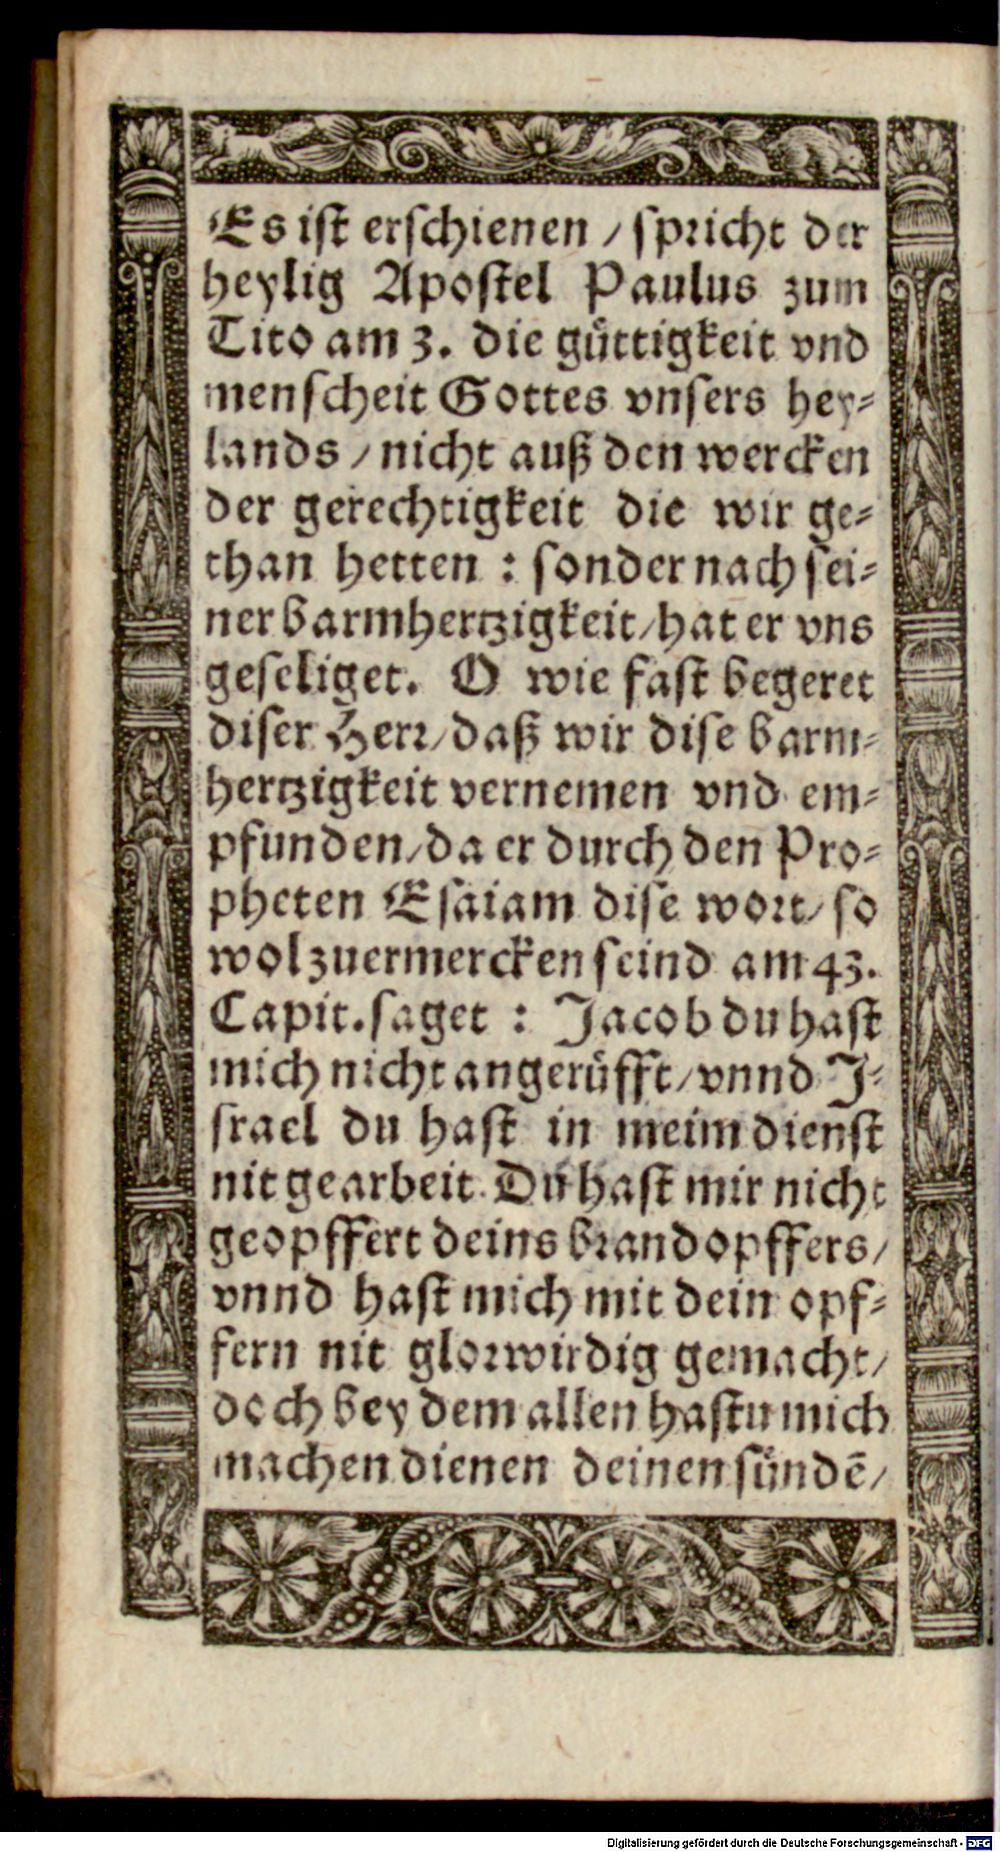 Es ist erschienen / spricht der
heylig Apostel Paulus zum
Tito am 3. die güttigkeit vnd
menscheit Gottes vnsers hey-
lands / nicht auß den wercken
der gerechtigkeit die wir ge-
than hetten : sonder nach sei-
ner barmhertzigkeit / hat er vns
geseliget. O wie fast begeret
diser Herr / daß wir dise barm-
hertzigkeit vernemen vnd em-
pfunden / da er durch den Pro-
pheten Esaiam dise wort / so
wol zuermercken seind am 43.
Capit. saget : Jacob du hast
mich nicht angerüfft / vnnd J-
srael du hast in meim dienst
nit gearbeit. Du hast mir nicht
geopffert deins brandopffers /
vnnd hast mich mit dein opf-
fern nit glorwirdig gemacht /
doch bey dem allen hastu mich
machen dienen deinen sündē /
Digitalisierung gefördert durch die Deutsche Forschungsgemeinschaft - DFG